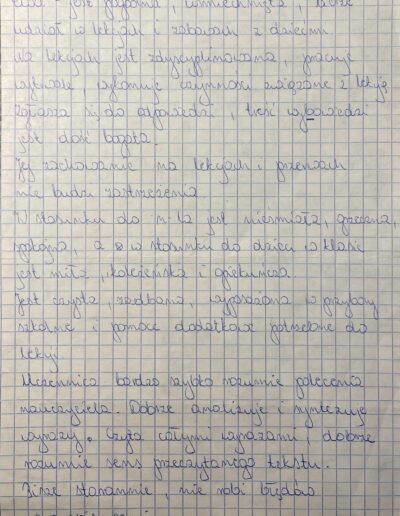 jest pogodna, uśmiechnięta, bierze
udział w lekcjach i zabawach z dziećmi.
Na lekcjach jest zdyscyplinowana, pracuje
wytrwale, wykonuje czynności związane z lekcją.
Zgłasza się do odpowiedzi, treść wypowiedzi
jest dość bogata.
Jej zachowanie na lekcjach i przerwach
nie budzi zastrzeżenia.
W stosunku do n-la jest nieśmiała, grzeczna,
spokojna, a w stosunku do dzieci w klasie
jest miła, koleżeńska i opiekuńcza.
Jest czysta, zadbana, wyposażona w przybory
szkolne i pomoce dodatkowe potrzebne do
lekcji.
Uczennica bardzo szybko rozumie polecenia
nauczyciela. Dobrze analizuje i syntezuje
wyrazy. Czyta całymi wyrazami, dobrze
rozumie sens przeczytanego tekstu.
Pisze starannie, nie robi błędów